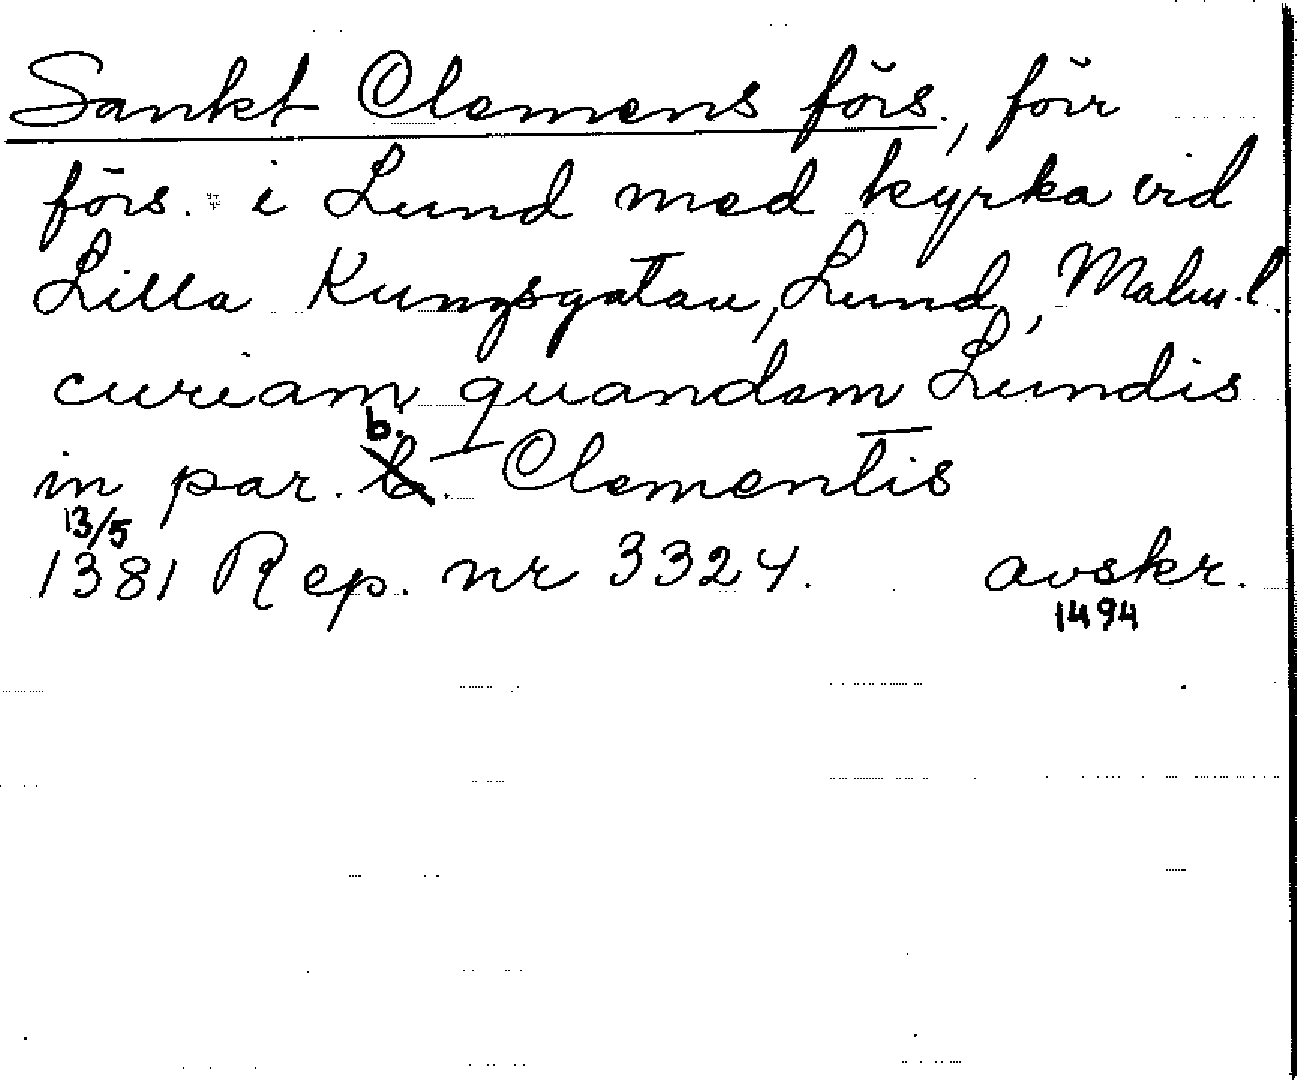 Sankt Clemens förs., förr
förs. i Lund med kyrka vid
Lilla Kungsgatan, Lund, Malm. l.
curiam quandam Lundis
in par. b. Clementis
13/5
1381 Rep. nr 3324. avskr.
1494